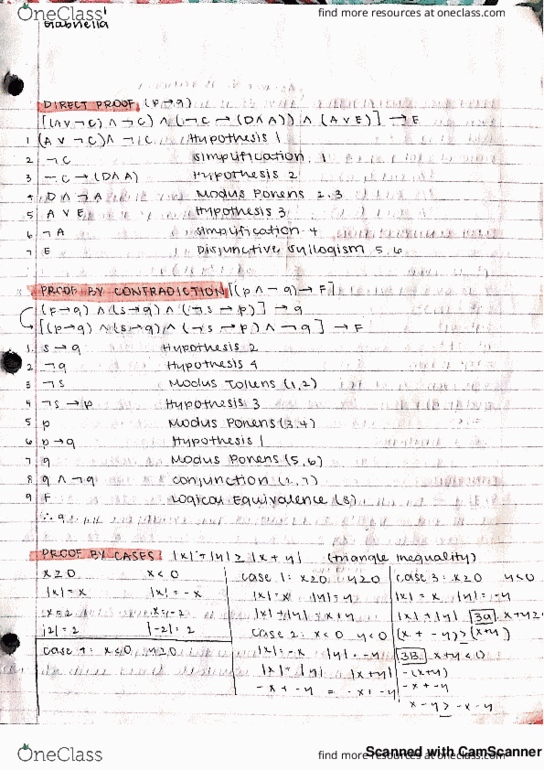 OneClass
find more resources at oneclass.com
Gabriella
DIRECT PROOF (p→q)
[(A∨¬C)∧¬C)∧(¬C→(D∧A))∧(A∨E)]→E
1 (A∨¬C)∧¬C Hypothesis 1
2 ¬C Simplification 1
3 ¬C→(D∧A) Hypothesis 2
4 D∧¬A Modus Ponens 2,3
5 A∨E Hypothesis 3
6 ¬A Simplification 4
7 E Disjunctive Syllogism 5,6
PROOF BY CONTRADICTION [(p∧¬q)→F]
(p→q)∧(s→q)∧(¬s→p)]→q
[(p→q)∧(s→q)∧(¬s→p)∧¬q]→F
1 s→q Hypothesis 2
2 ¬q Hypothesis 4
3 ¬s Modus Tollens (1,2)
4 ¬s→p Hypothesis 3
5 p Modus Ponens (3,4)
6 p→q Hypothesis 1
7 q Modus Ponens (5,6)
8 q∧¬q conjunction (2,7)
9 F Logical Equivalence (8)
∴ q
PROOF BY CASES |x|+|y|≥|x+y| (triangle inequality)
x≥0 x<0
|x|=x |x|=-x
x=2 x=-2
|2|=2 |-2|=2
case 4: x<0 y≥0
case 1: x≥0 y≥0
|x|=x |y|=y
|x|+|y|=x+y
case 2: x<0 y<0
|x|=-x |y|=-y
|x|+|y| |x+y|
-x+-y = -x+-y
case 3: x≥0 y<0
|x|=x |y|=-y
|x|+|y| 3a x+y≥
(x+-y)≥(x+y)
3B x+y<0
-(x+y)
-x+-y
x-y≥-x-y
OneClass
find more resources at oneclass.com
Scanned with CamScanner